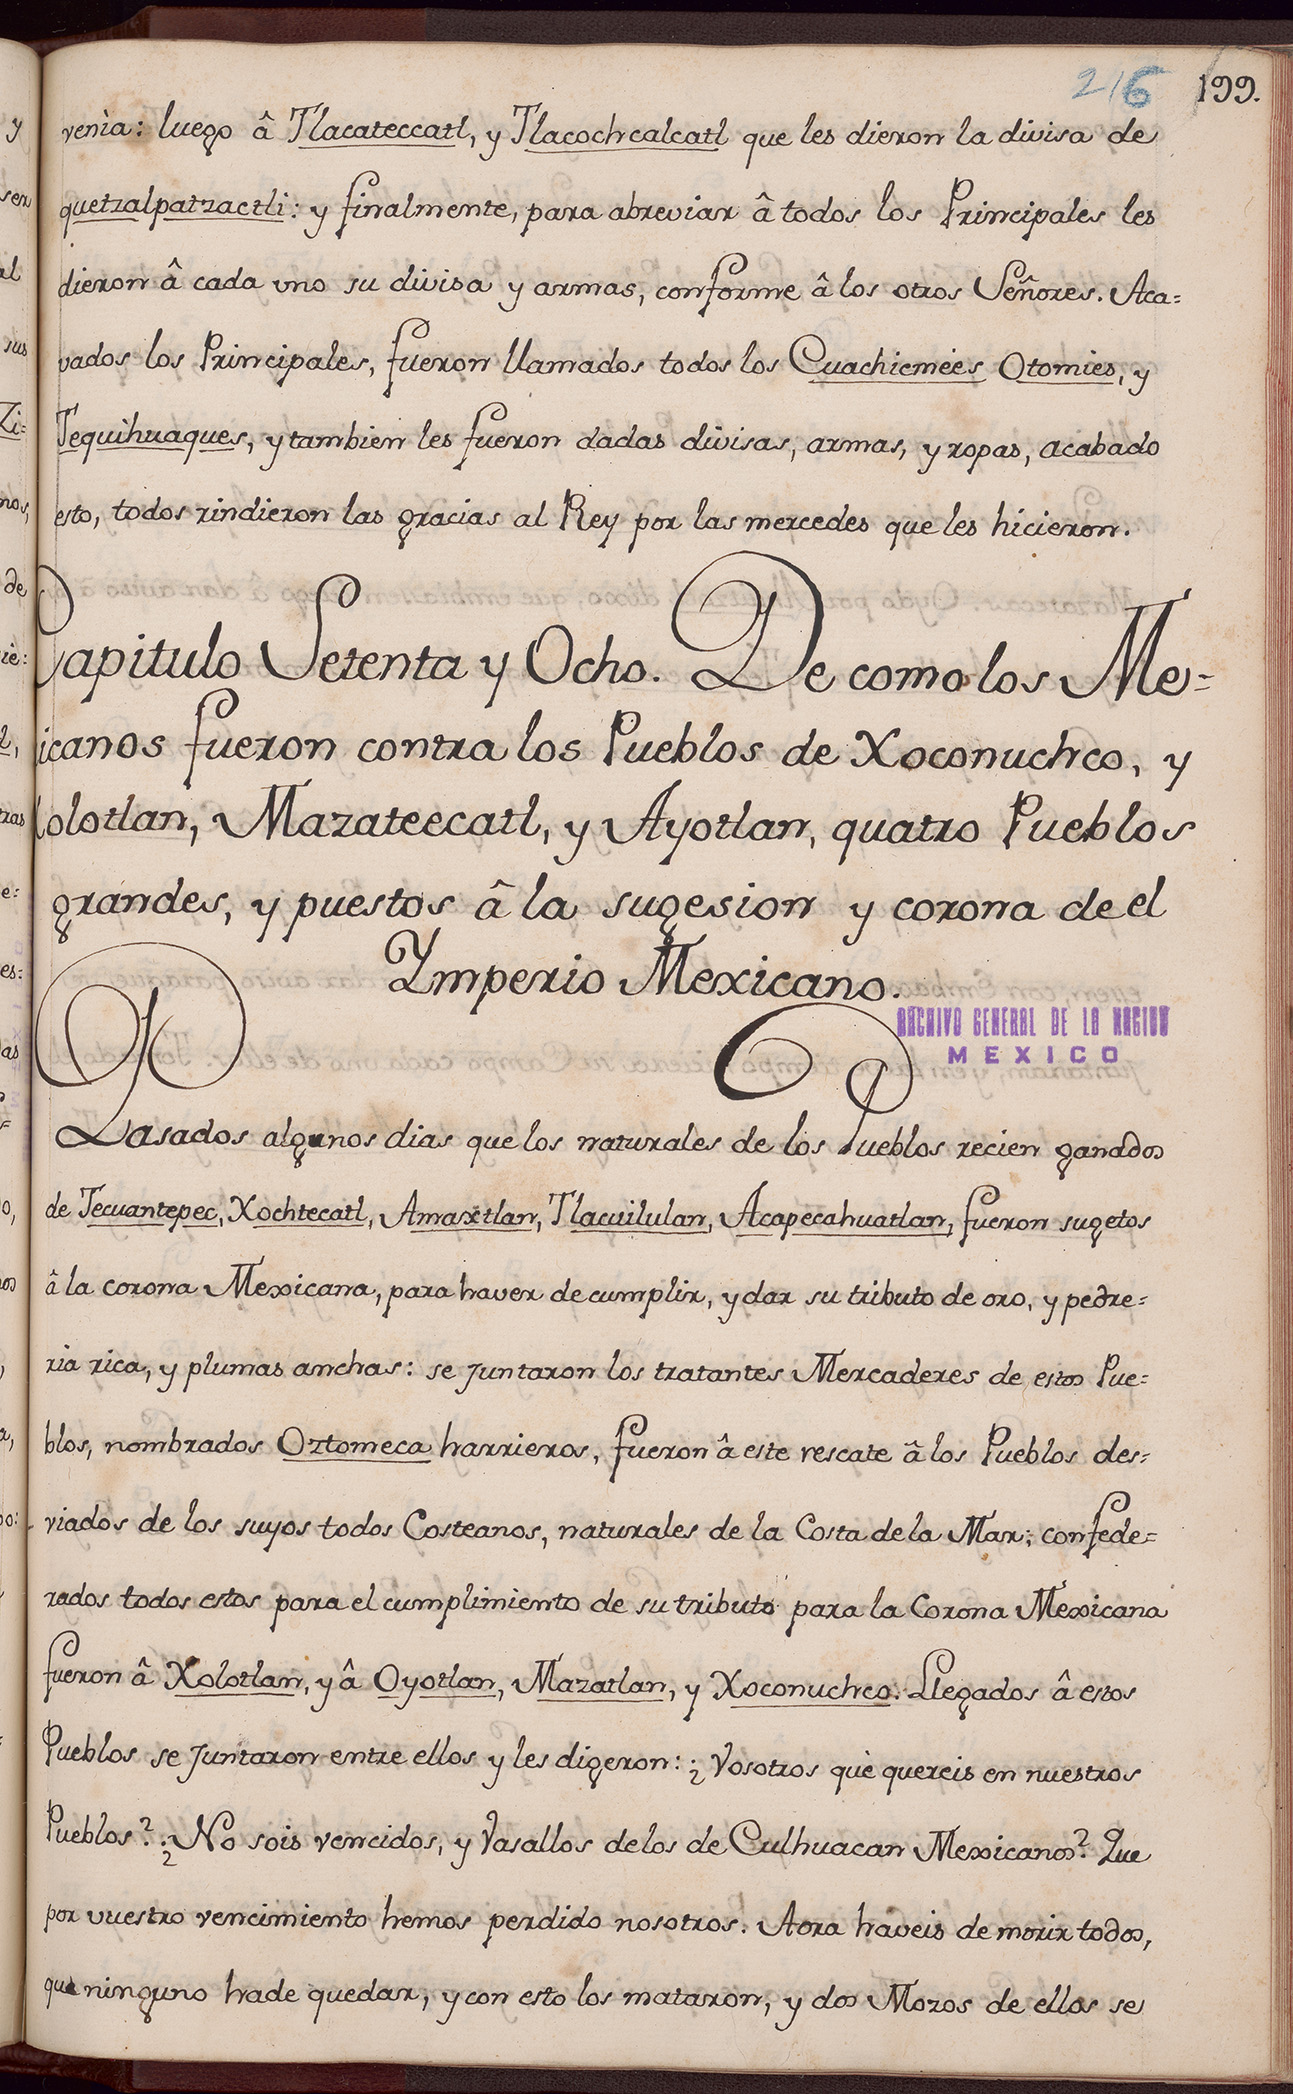 216 199.
venia: luego â Tlacateccatl, y Tlacochcalcatl que les dieron la divisa de
quetzalpatzactli: y finalmente, para abreviar â todos los Principales les
dieron â cada uno su divisa y armas, conforme â los otros Señores. Aca=
vados los Principales, fueron llamados todos los Cuachicmées Otomies, y
Tequihuaques, y tambien les fueron dadas divisas, armas, y ropas, acabado
esto, todos rindieron las gracias al Rey por las mercedes que les hicieron.
Capitulo Setenta y Ocho. De como los Me=
icanos fueron contra los Pueblos de Xoconuchco, y
olotlan, Mazateecatl, y Ayotlan, quatro Pueblos
grandes, y puestos â la sugesion y corona de el
Ymperio Mexicano.
ARCHIVO GENERAL DE LA NACION
MEXICO
Pasados algunos dias que los naturales de los Pueblos recien ganados
de Tecuantepec, Xochtecatl, Amaxtlan, Tlacuilulan, Acapecahuatlan, fueron sugetos
â la corona Mexicana, para haver de cumplir, y dar su tributo de oro, y pedre=
ria rica, y plumas anchas: se juntaron los tratantes Mercaderes de estos Pue=
blos, nombrados Oztomeca harrieros, fueron â este rescate â los Pueblos des=
viados de los suyos todos Costeanos, naturales de la Costa de la Mar; confede=
rados todos estos para el cumplimiento de su tributo para la Corona Mexicana
fueron â Xolotlan, y â Oyotlan, Mazatlan, y Xoconuchco. Llegados â estos
Pueblos se juntaron entre ellos y les digeron: ¿Vosotros què quereis en nuestros
Pueblos? ¿No sois vencidos, y Vasallos de los de Culhuacan Mexicanos? Que
por vuestro vencimiento hemos perdido nosotros. Aora haveis de morir todos,
que ninguno hade quedar, y con esto los mataron, y dos Mozos de ellos se